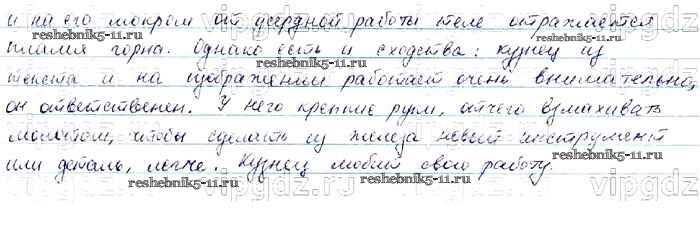 и на его мокром от усердной работы теле отражается
reshebnik5-11.ru
пламя горна. Однако есть и сходства: кузнец из
reshebnik5-11.ru reshebnik5-11.ru
текста и на изображении работает очень внимательно,
он ответственен. У него крепкие руки, отчего взмахивать
reshebnik5-11.ru
молотом, чтобы сделать из железа новый инструмент
или деталь, легче. Кузнец любит свою работу.
vipgdz.ru reshebnik5-11.ru vipgdz
reshebnik5-11.ru